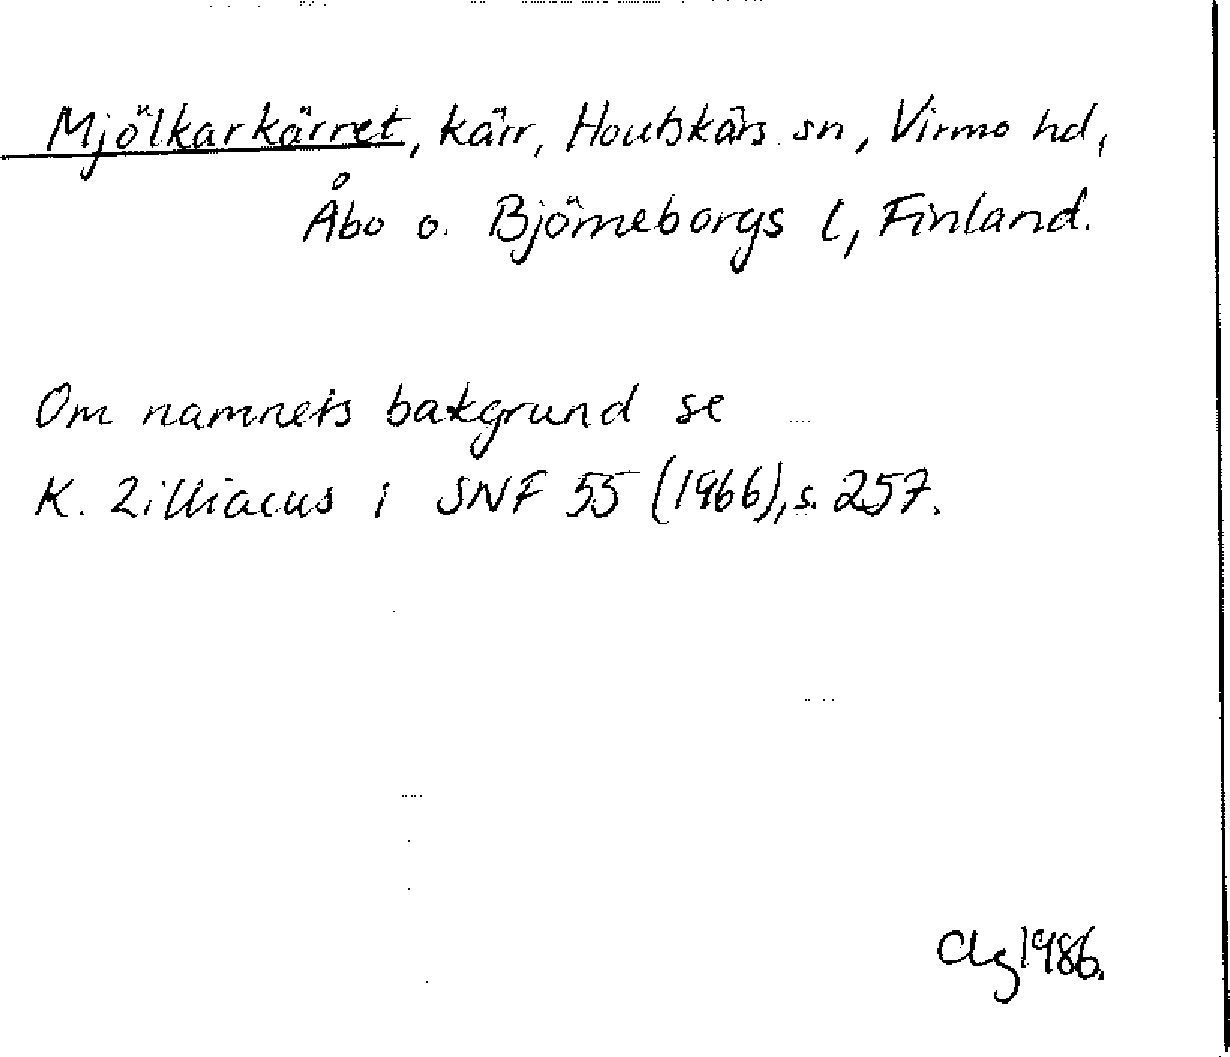 Mjölkarkärret, kärr, Houtskärs sn, Virmo hd,
Åbo o. Björneborgs l, Finland.
Om namnets bakgrund se
K. Zilliacus i SNF 55 (1966), s. 257.
1986.